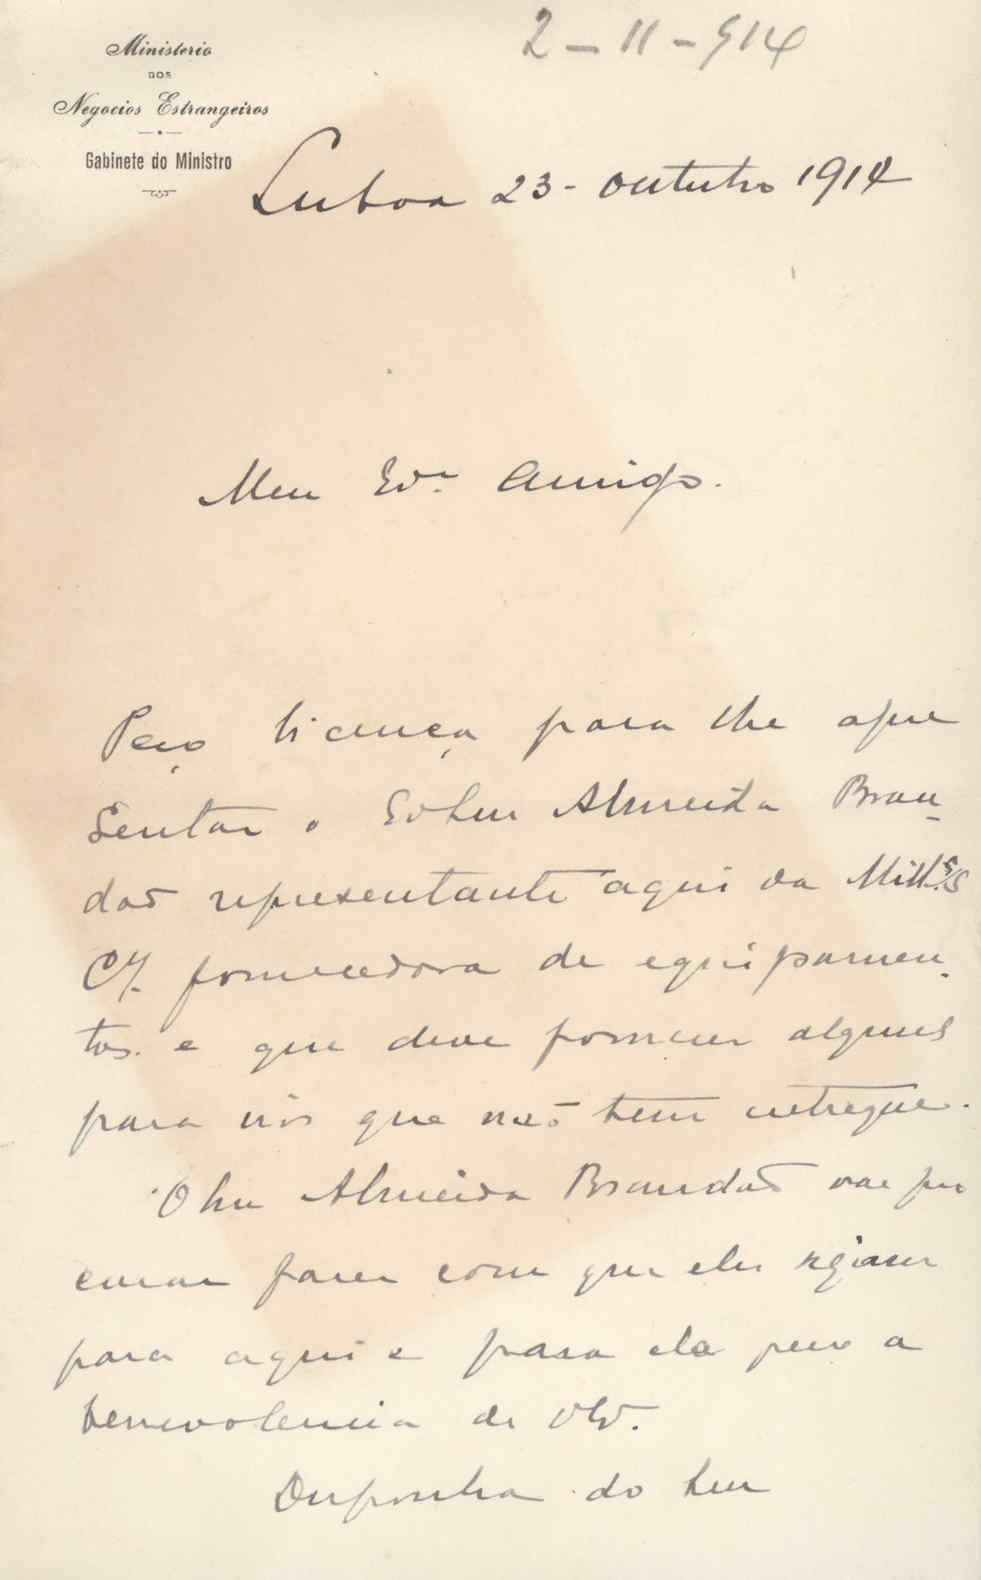 2-11-914
Ministerio
DOS
Negocios Estrangeiros
Gabinete do Ministro
Lisboa 23- outubro 1914
Meu Exº. Amigo.
Peço licença para lhe apre
sentar o Exº Snr Almeida Bran-
dão representante aqui da Mills &
Cª. fornecedora de equipamen-
tos. e que deve fornecer alguns
para nós que não tem entregue.
O Snr Almeida Brandão vae pro
curar fazer com que eles sejam
para aqui e para ele peço a
benevolencia de V. Exª.
Disponha do seu